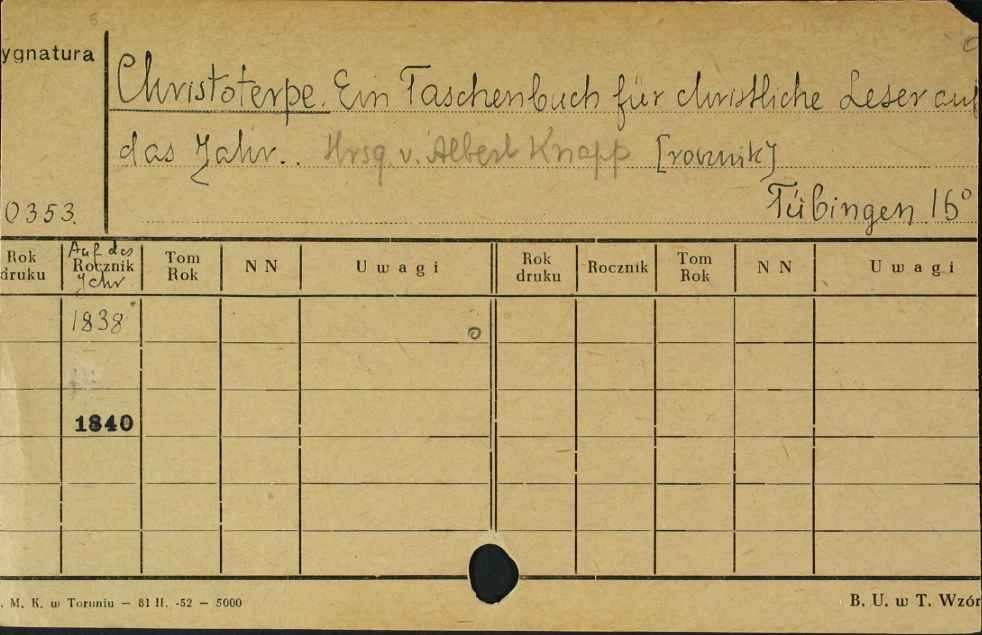 ygnatura
Christoterpe. Ein Taschenbuch für christliche Leser auf
das Jahr.. Hrsg v. Albert Knapp [rocznik]
0353.
Tübingen 16°
Rok druku Auf das Rocznik Jahr Tom Rok N N Uwagi Rok druku Rocznik Tom Rok N N Uwagi
1838
1840
. M. K. w Toruniu — 81 II. -52 — 5000
B. U. w T. Wzór